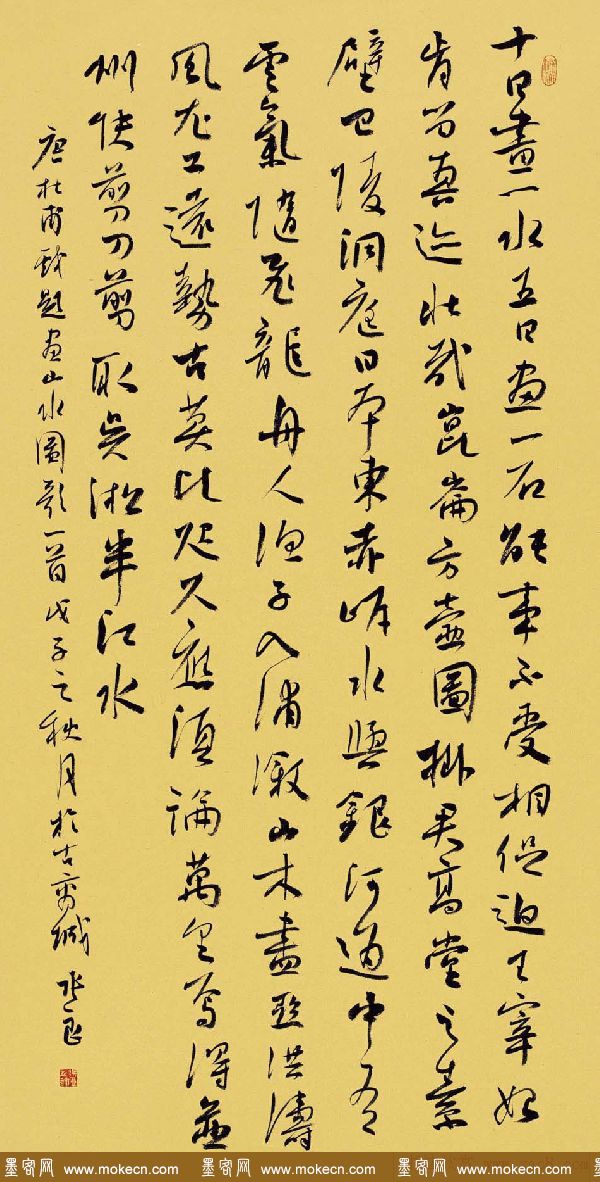 十日畫一水五日画一石能事不受相促迫王宰始
肯留真迹壯哉崑崙方壺圖掛君高堂之素
壁巴陵洞庭日本東赤岸水與銀河通中有
雲氣隨飛龍舟人漁子入浦漵山木盡亞洪濤
風尤工遠勢古莫比咫尺應須論萬里焉得並
州快剪刀剪取吳淞半江水
唐杜甫戲題画山水圖歌一首戊子之秋月於古商城
墨客网 www.mokecn.com 墨客网 www.mokecn.com 墨客网 www.mokecn.com 墨客网